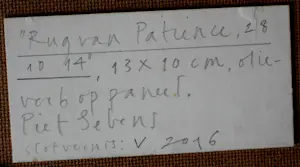 "Rug van Patience, 28
10 14", 13 x 10 cm, olie-
verf op paneel.
Piet Sebens
slotvernis: V, 2016